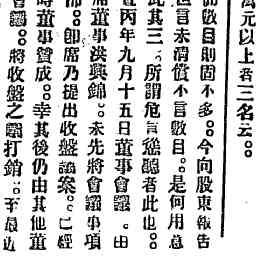 萬元以上者三名云。。
而數目則固不多。。今向股東報告
但言未清償不言數目。。是何用意
此其三。。所謂危言慫聽者此也。。
丙年九月十五日董事會議。由
席董事洪興錦。。未先將會議事項
部。。卽席乃提出收盤議案。。已經
時董事贊成。。幸其後仍由其他董
會議。。將收盤之議打銷。。至最近